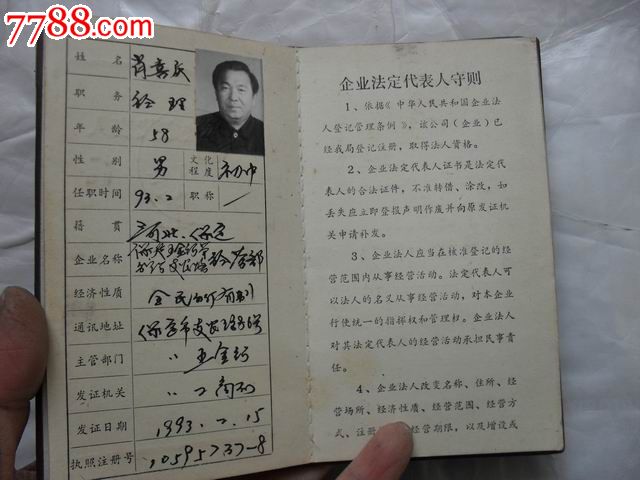 7788.com
姓名 肖喜庆
职务 经理
年龄 58
性别 男 文化程度 初中
任职时间 93.2 职称 /
籍贯 河北.保定
企业名称
经济性质 全民所有制
通讯地址
主管部门 〃 五金
发证机关 〃 工商局
发证日期 1993.2.15
执照注册号 10595737-8
企业法定代表人守则
1、依据《中华人民共和国企业法
人登记管理条例》，该公司（企业）已
经我局登记注册，取得法人资格。
2、企业法定代表人证书是法定代
表人的合法证件，不准转借、涂改，如
丢失应立即登报声明作废并向原发证机
关申请补发。
3、企业法人应当在核准登记的经
营范围内从事经营活动。法定代表人可
以法人的名义从事经营活动，对本企业
行使统一的指挥权和管理权。企业法人
对其法定代表人的经营活动承担民事责
任。
4、企业法人改变名称、住所、经
营场所、经济性质、经营范围、经营方
式、注册 经营期限，以及增设或